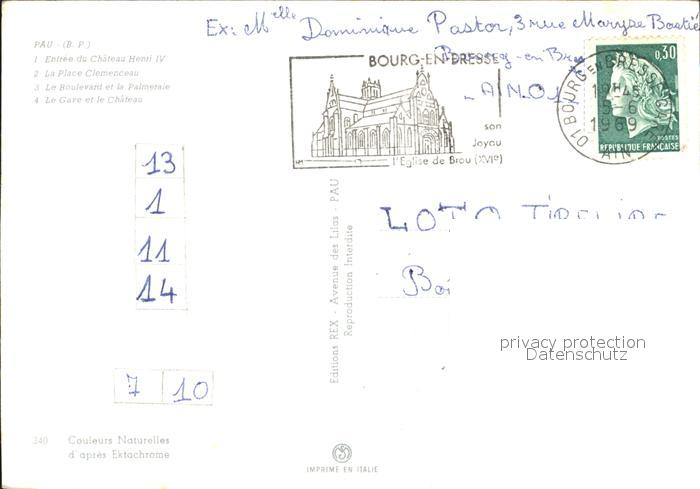 Ex: Melle Dominique Pastor, 3 rue Maryse Bastié
Bourg-en-Bres
AIN 01
PAU - (B. P.)
1 Entrée du Château Henri IV
2 La Place Clemenceau
3 Le Boulevard et la Palmeraie
4 Le Gave et le Château
BOURG-EN-BRESSE
son
Joyau
l'Eglise de Brou (XVIe)
01 BOURG EN BRESSE
AIN
1969
0,30
POSTES
REPUBLIQUE FRANÇAISE
13
1
11
14
7 10
LOTO TIRELIRE
Boi
Editions REX - Avenue des Lilas - PAU
Reproduction Interdite
privacy protection
Datenschutz
340 Couleurs Naturelles
d'après Ektachrome
IMPRIME EN ITALIE